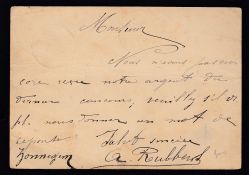 Monsieur
Nous n'avons pas en
core reçu notre argent du
dernier concours, veuillez s'il v.
pl. nous donner un mot de
reponse Salut sincère
A. Rubbens